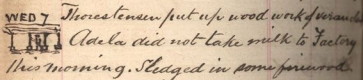 WED 7 Thorestensen put up wood work of verandah
Adela did not take milk to Factory
this morning. Sledged in some firewood